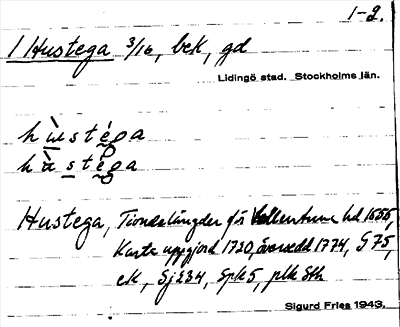 1-2.
1 Hustega 3/16, bek, gd
Lidingö stad. Stockholms län.
hùstéga
hùstéga
Hustega, Tiondelängder för Vallentuna hd 1555,
Karta uppgjord 1720, översedd 1774, G 75,
eK, Sj 234, Spk 5, plk Sth
Sigurd Fries 1943.